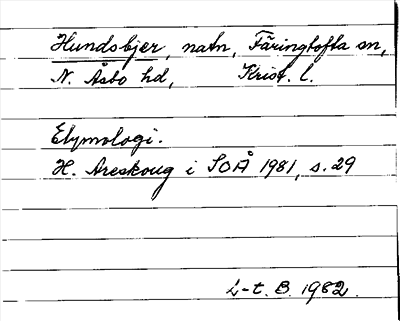 Hundsbjer, natn, Färingtofta sn,
N. Åsbo hd, Krist. l.
Etymologi.
H. Areskoug i SOÅ 1981, s. 29
L-t. B. 1982.